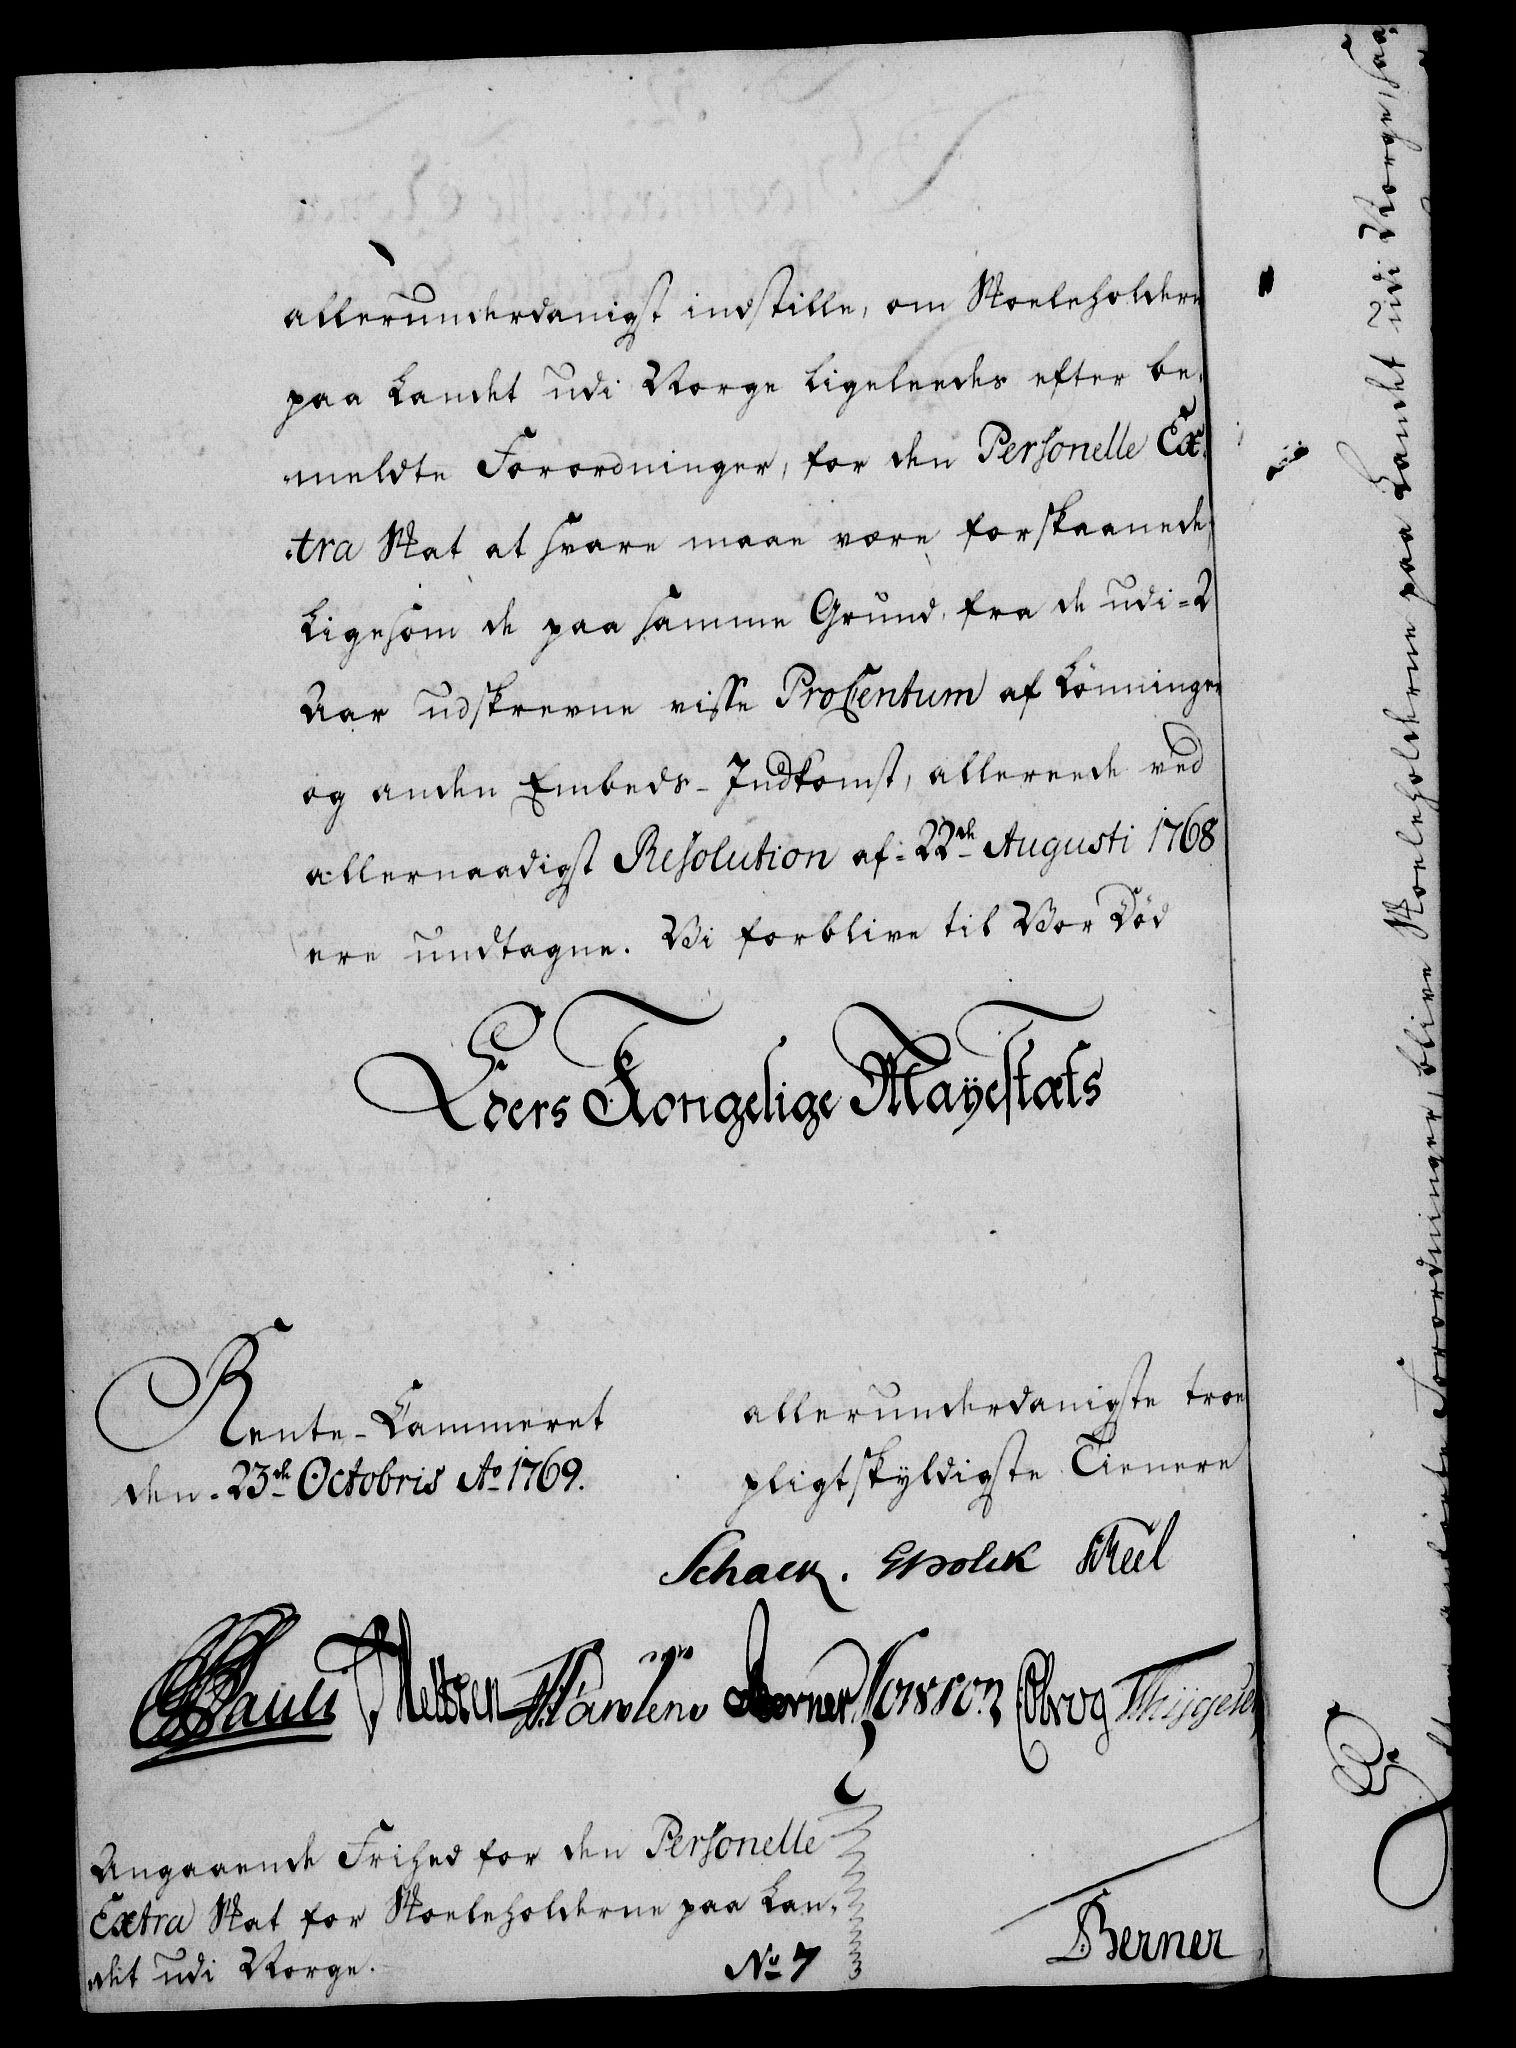 allerunderdanigst indstille, om Skoeleholdere
paa Landet udi Norge ligeleedes efter be-
meldte Forordninger, for den Personelle Ex-
tra Skat at svare maae være forskaanede,
ligesom de paa samme Grund, fra de udi 2
Aar udskrevne visse Procentum af Lønninger
og anden Embeds-Indkomst, allereede ved
allernaadigst Resolution af 22de Augusti 1768
ere undtagne. Vi forblive til Vor Død
Eders Kongelige Mayestæts
Rente-Cammeret
den 23de Octobris Ao 1769.
allerunderdanigste troe
pligtskyldigste Tienere
Schack. Skeel
Pauli Berner
Angaaende Frihed for den Personelle
Extra Skat for Skoeleholderne paa Lan-
det udi Norge.
No 7
Berner
Forordninger, blive Skoeleholderne paa Landet udi Norge, saa